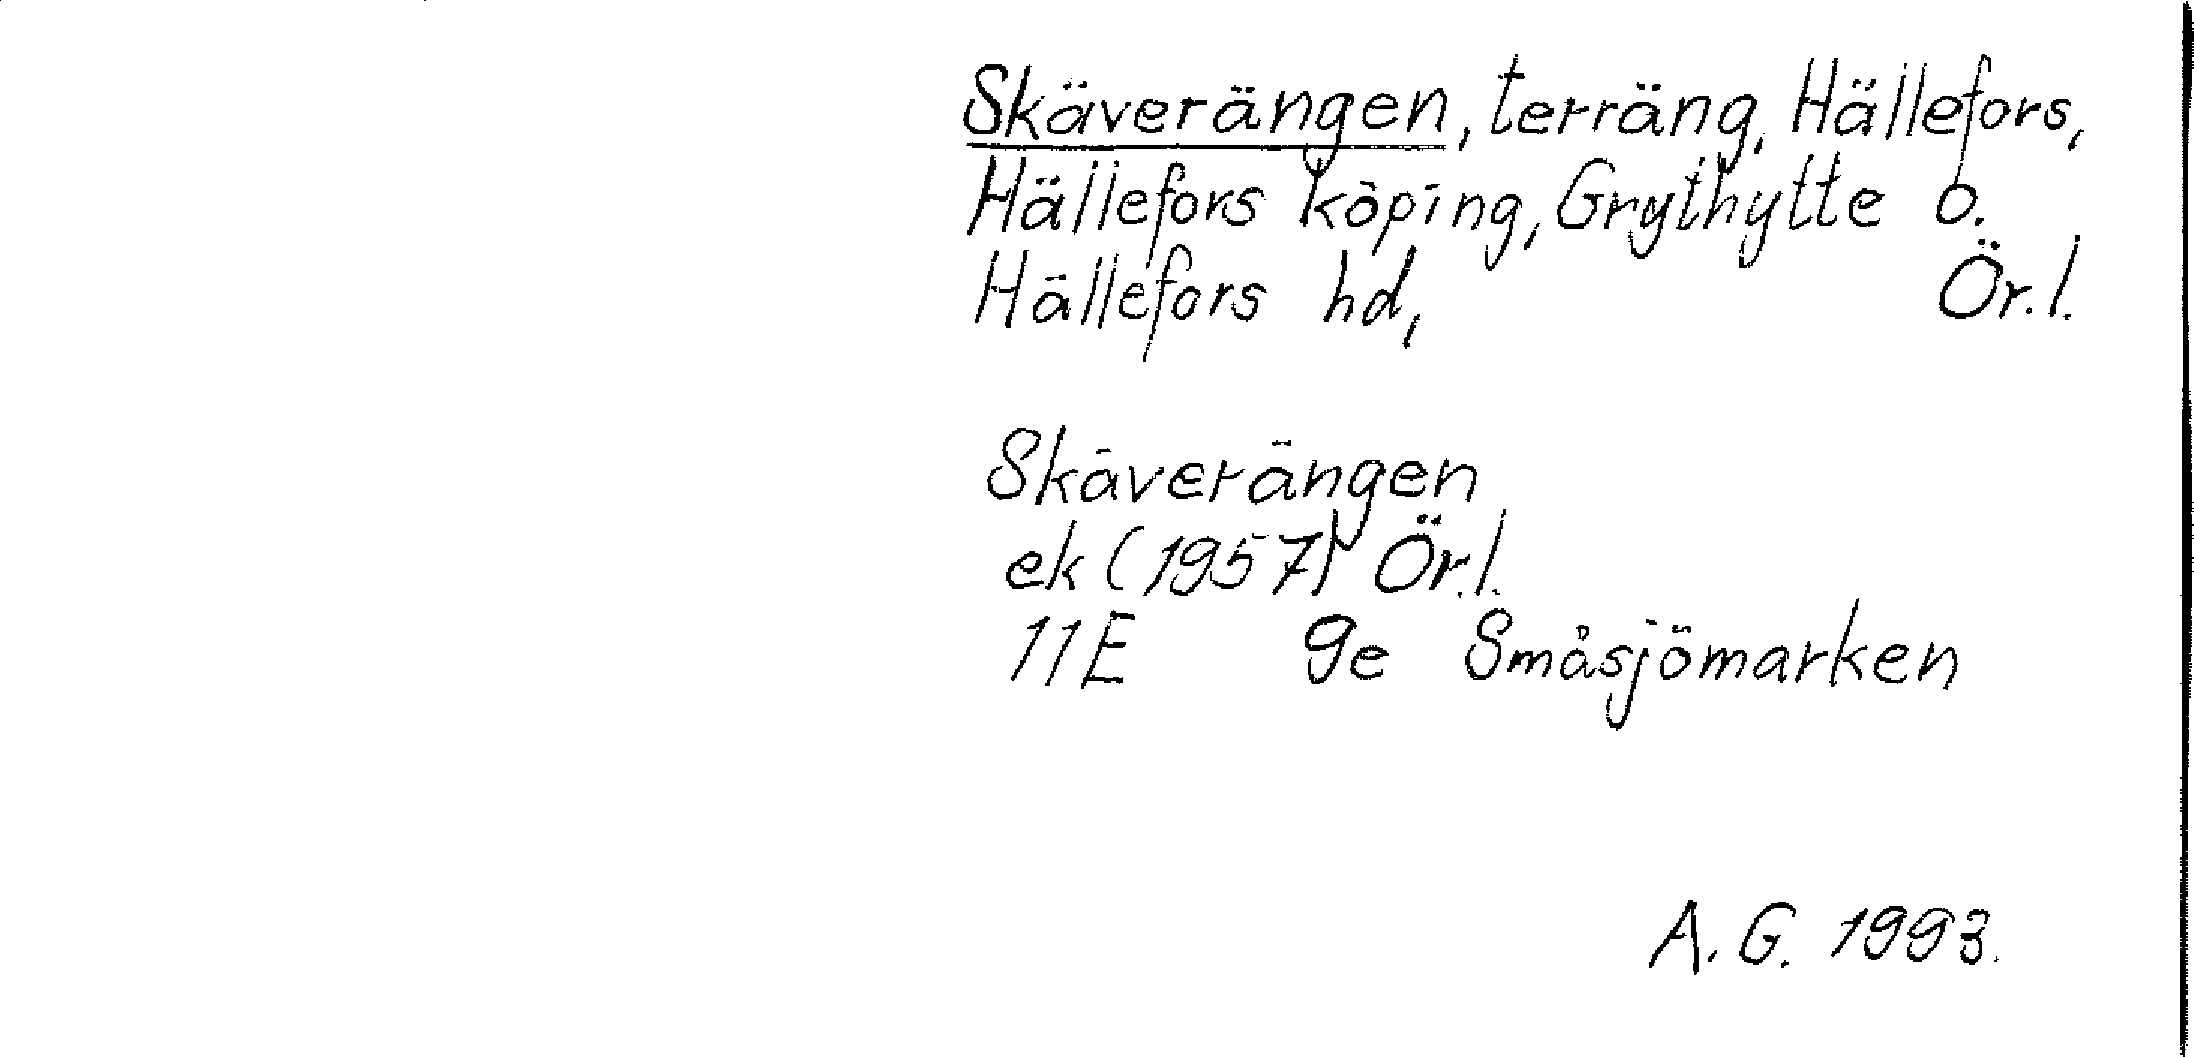 Skäverängen, terräng, Hällefors,
Hällefors köping, Grythytte o.
Hällefors hd, Ör.l.
Skäverängen
ek (1957) Ör.l.
11E 9e Småsjömarken
A. G. 1993.